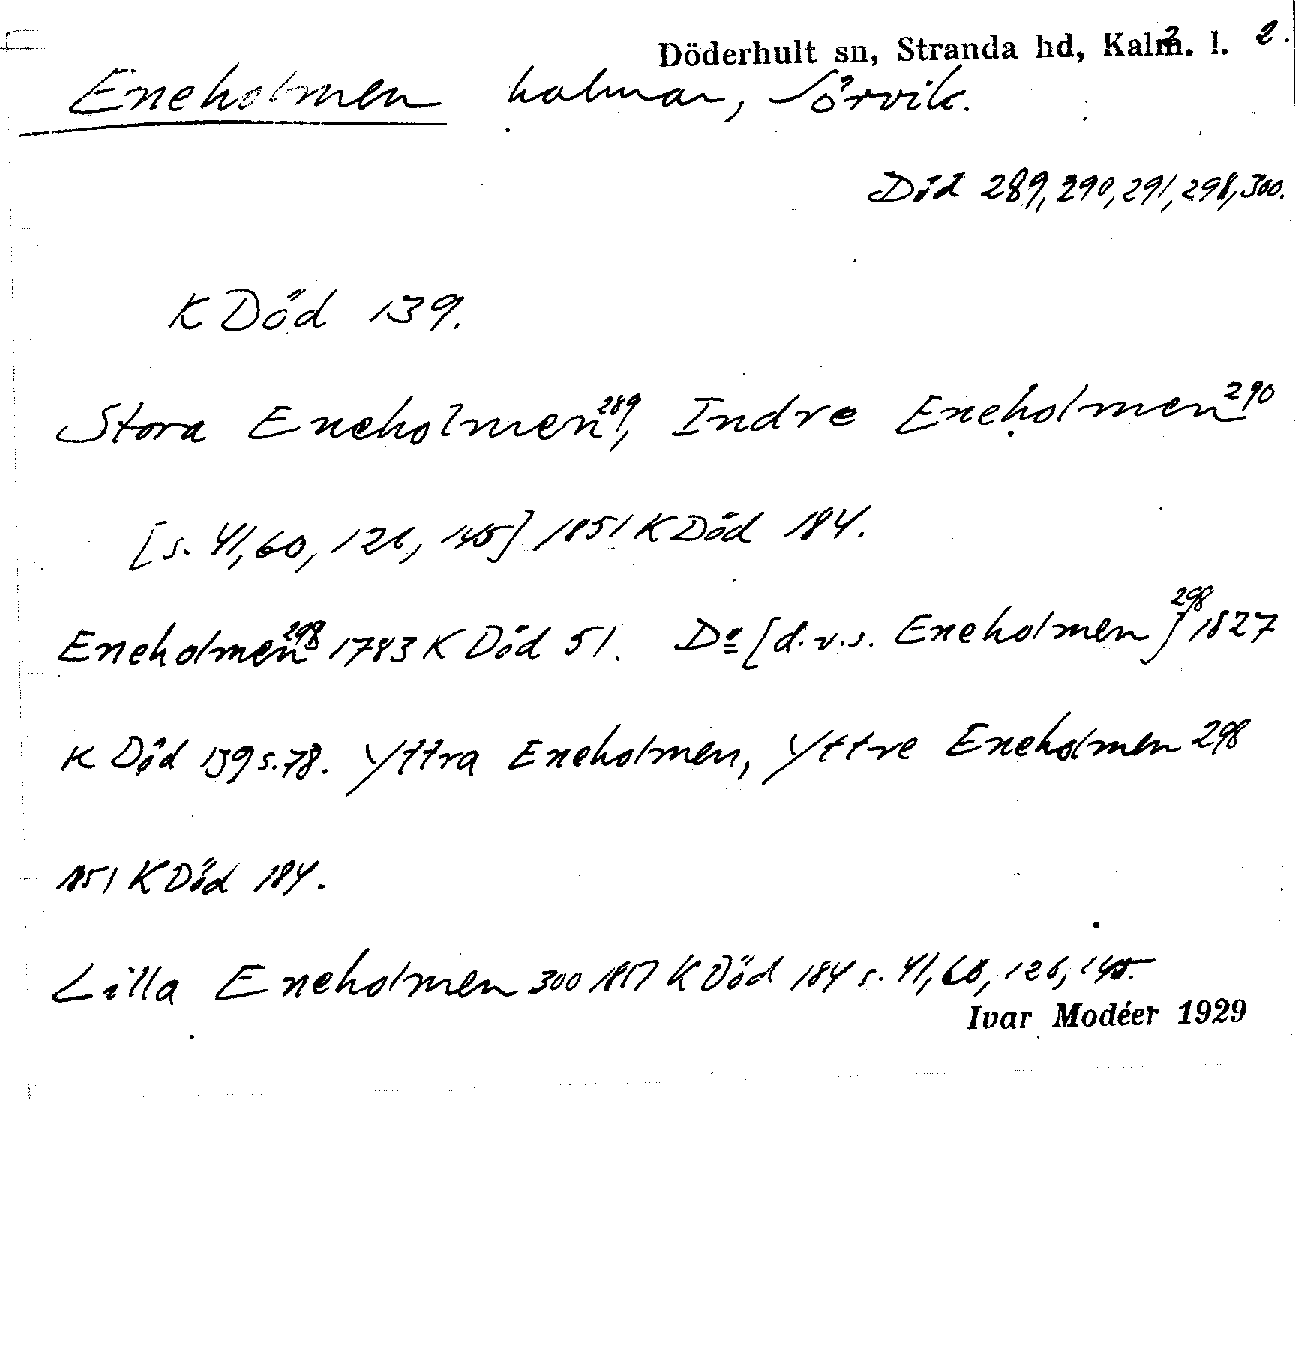 Döderhult sn, Stranda hd, Kalm. l. 2.
Eneholmen holmar, Sörvik.
Död 289, 290, 291, 298, 300.
K Död 139.
Stora Eneholmen 289, Indre Eneholmen 290
[s. 41, 60, 126, 145] 1851 K Död 184.
Eneholmen 298 1783 K Död 51. Do [d.v.s. Eneholmen] 298 1827
K Död 139 s. 78. Yttra Eneholmen, Yttre Eneholmen 298
1851 K Död 184.
Lilla Eneholmen 300 K Död 184 s. 41, 60, 126, 145.
Ivar Modéer 1929